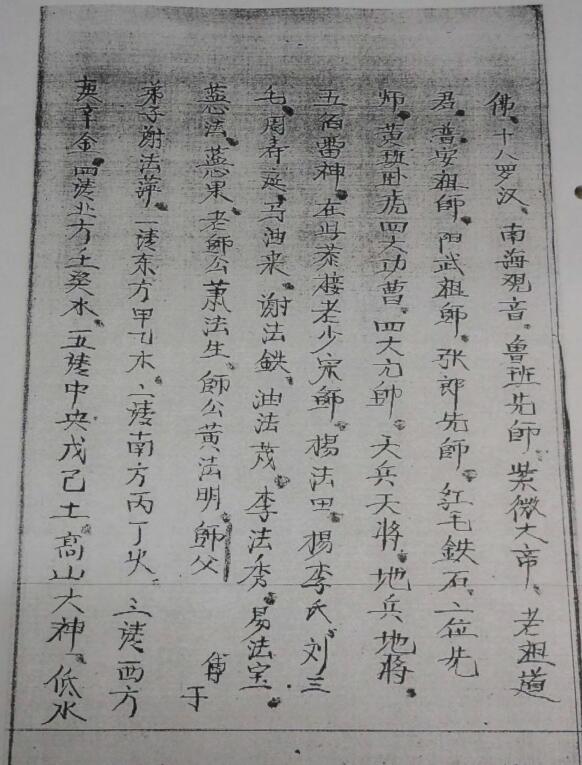 佛、十八罗汉、南海观音、鲁班先师、紫微大帝、老祖道
君、普安祖師、阳武祖師、张郎先師、红毛鉄石、二位先
师、黄班卧虎四大功曹、四大元帥、天兵天將、地兵地將、
五佰雷神、在坛茶楼老少宗師、楊法田、楊李氏、刘三
毛、周寿延、马油来、谢法鉄、油法茂、李法秀、易法宝、
法、果、老師公萧法生、師公黄法明、師父
傅于
弟子谢法萍、一请东方甲乙木、二请南方丙丁火、三请西方
庚辛金、四请北方壬癸水、五请中央戊己土、高山大神、低水